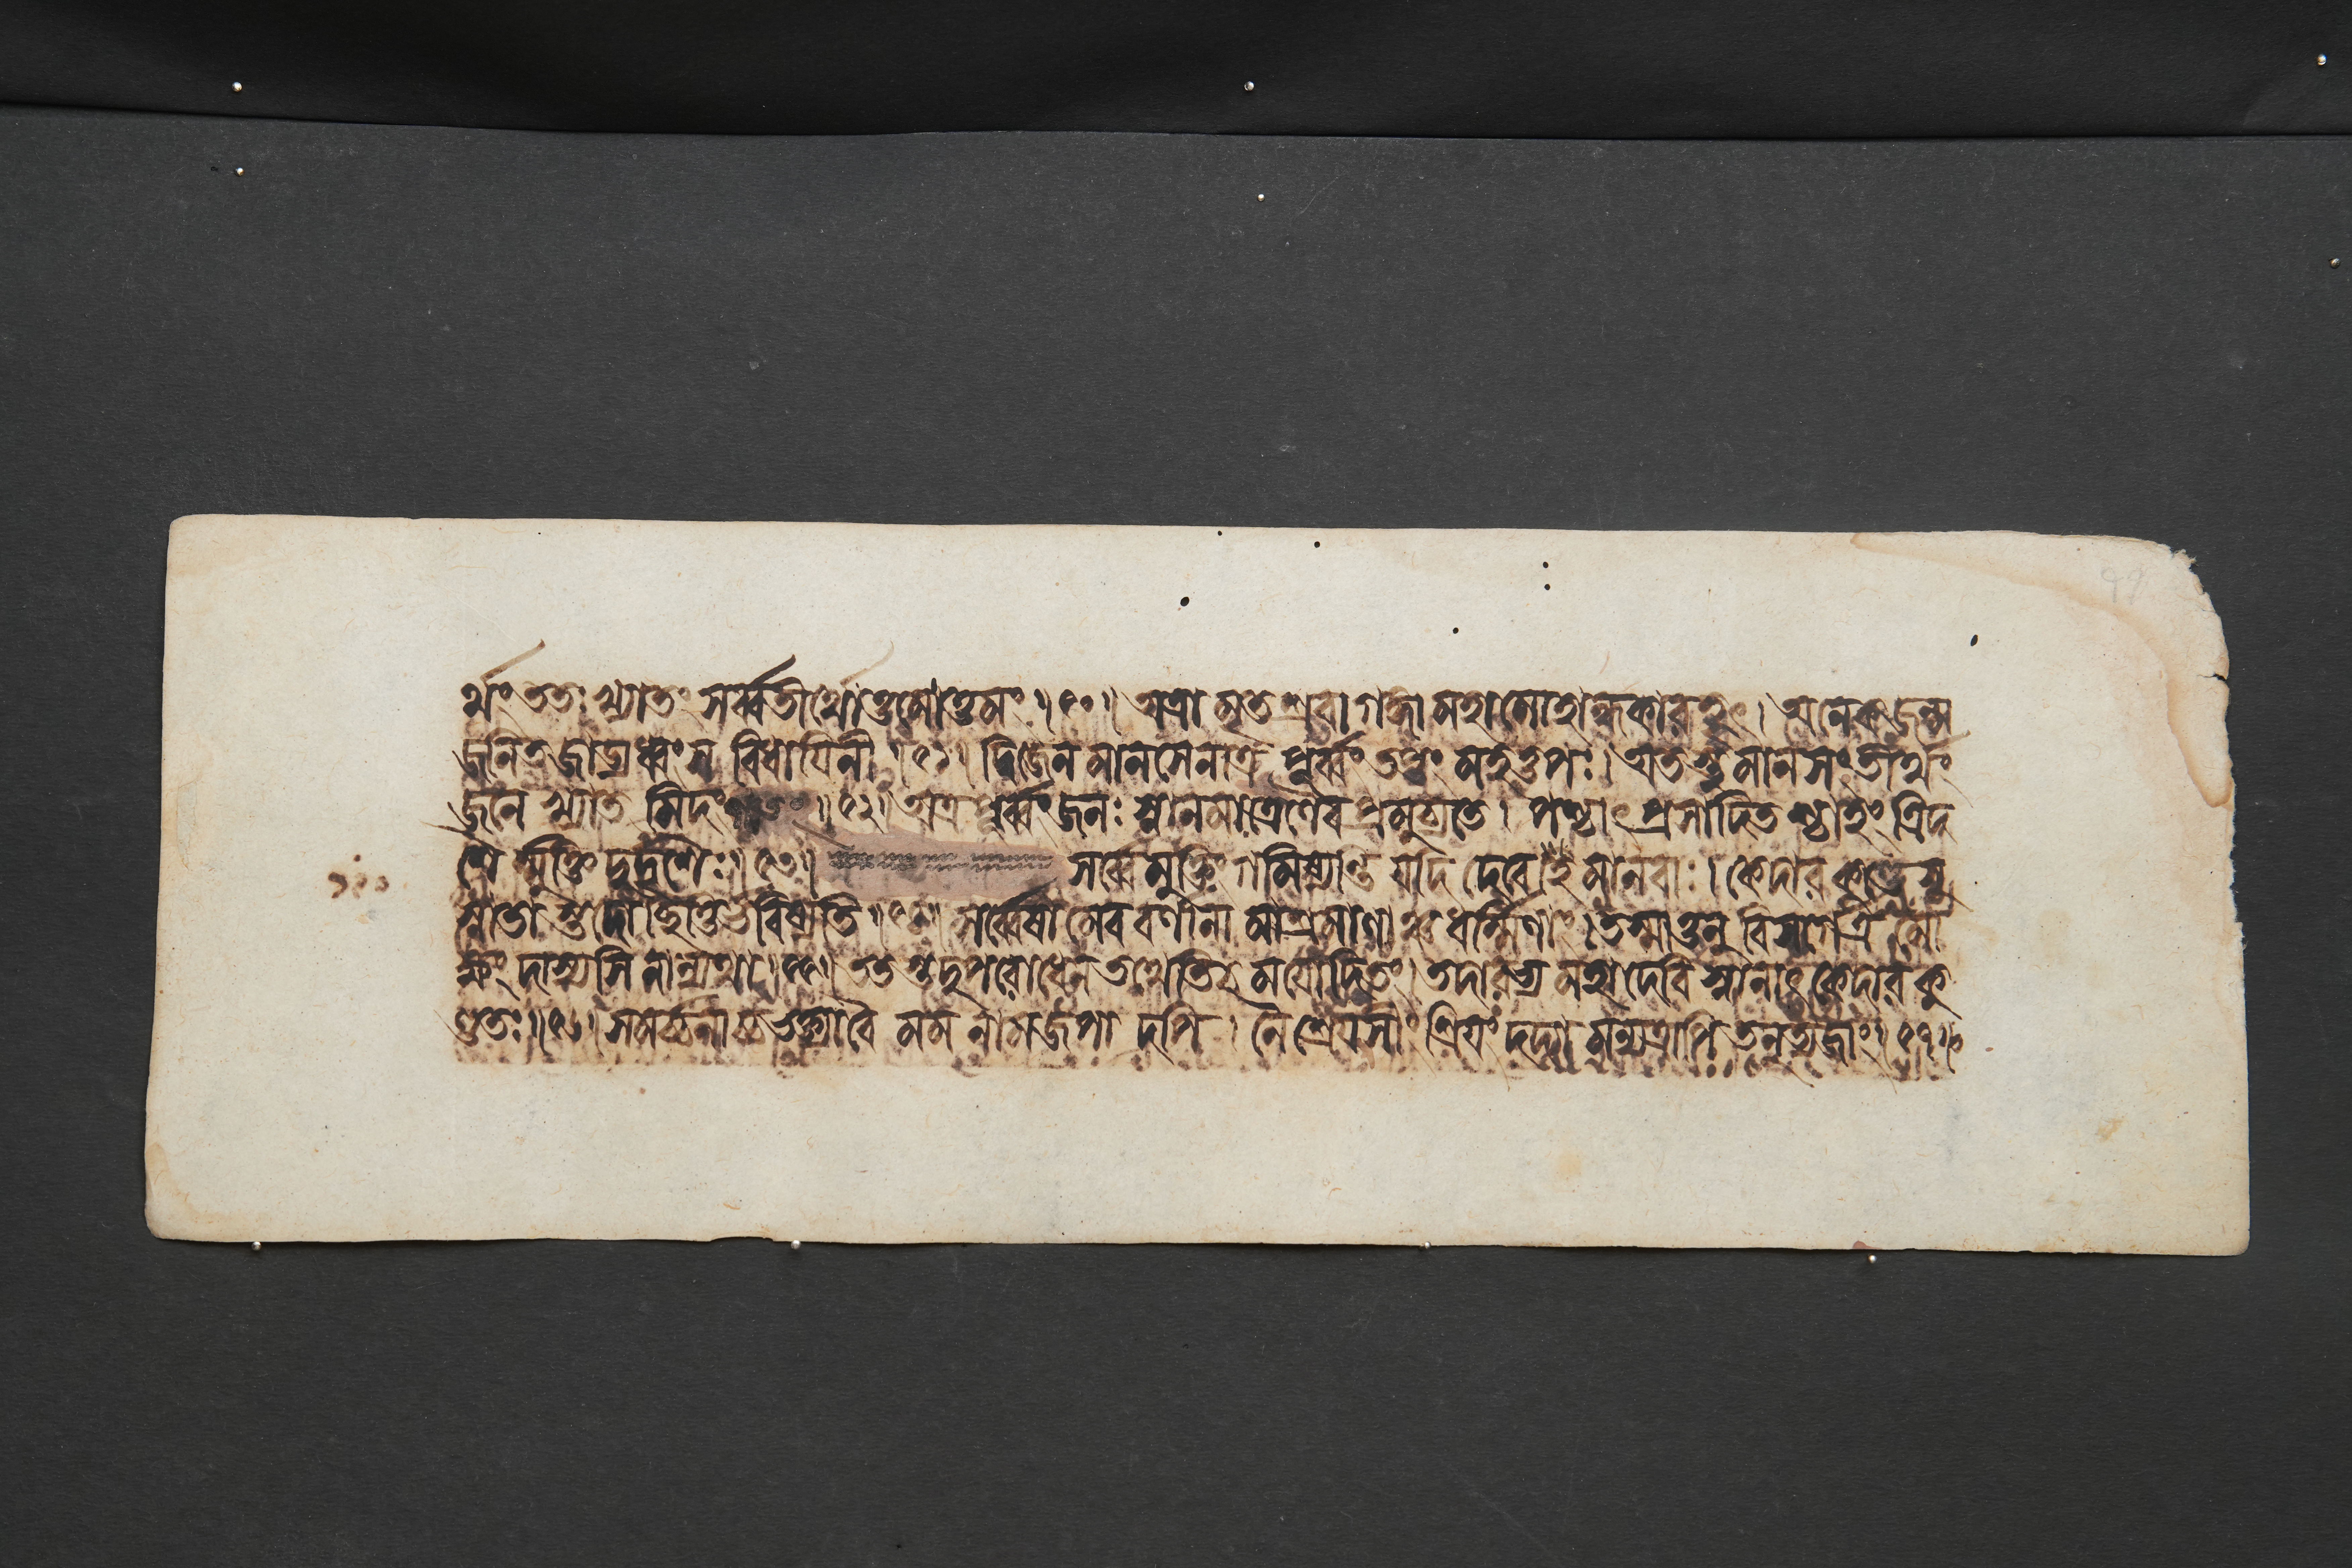 র্থং ততঃ খ্যাতং সর্ব্বতীর্থোত্তমোত্তমং ॥৫০॥ অত্রামৃতশ্রবা গঙ্গা মহামোহান্ধকারহৃৎ। অনেকজন্ম
জনিতজাড্যধ্বংস বিধায়িনী ॥৫১॥ দ্বিজেন মানসেনাত্র পূর্ব্বং তপ্তং মহত্তপঃ। অতস্তু মানসং তীর্থং
জনে খ্যাতমিদং ॥৫২॥ অত্র পূর্ব্বং জনঃ স্নানমাত্রেণৈব প্রমুচ্যতে। পশ্চাৎ প্রসাদিতশ্চাহং ত্রিদ
শৈ র্মুক্তিদুর্দৃশৈঃ ॥৫৩॥ সর্ব্বে মুক্তিং গমিষ্যন্তি যদি দেবেহ মানবাঃ। কেদারকুণ্ডে সু
স্নাতা স্তদোচ্ছিত্তির্ভবিষ্যতি ॥৫৪॥ সর্ব্বেষামেব বর্ণানামাশ্রমাণাঞ্চ ধর্ম্মিণাং। তস্মাত্তনু বিসর্গেত্র মো
ক্ষং দাস্যসি নান্যথা ॥৫৫॥ ততস্তদুপরোধেন তথেতি চ ময়োদিতং। তদারভ্য মহাদেবি স্নানাৎ কেদারকু
ণ্ডতঃ ॥৫৬॥ সমর্চ্চনাচ্চ ভক্ত্যা বৈ মম নামজপাদপি। নৈশ্রেয়সীং শ্রিয়ং দদ্যামন্যত্রাপি তনুত্যজাং ॥৫৭॥